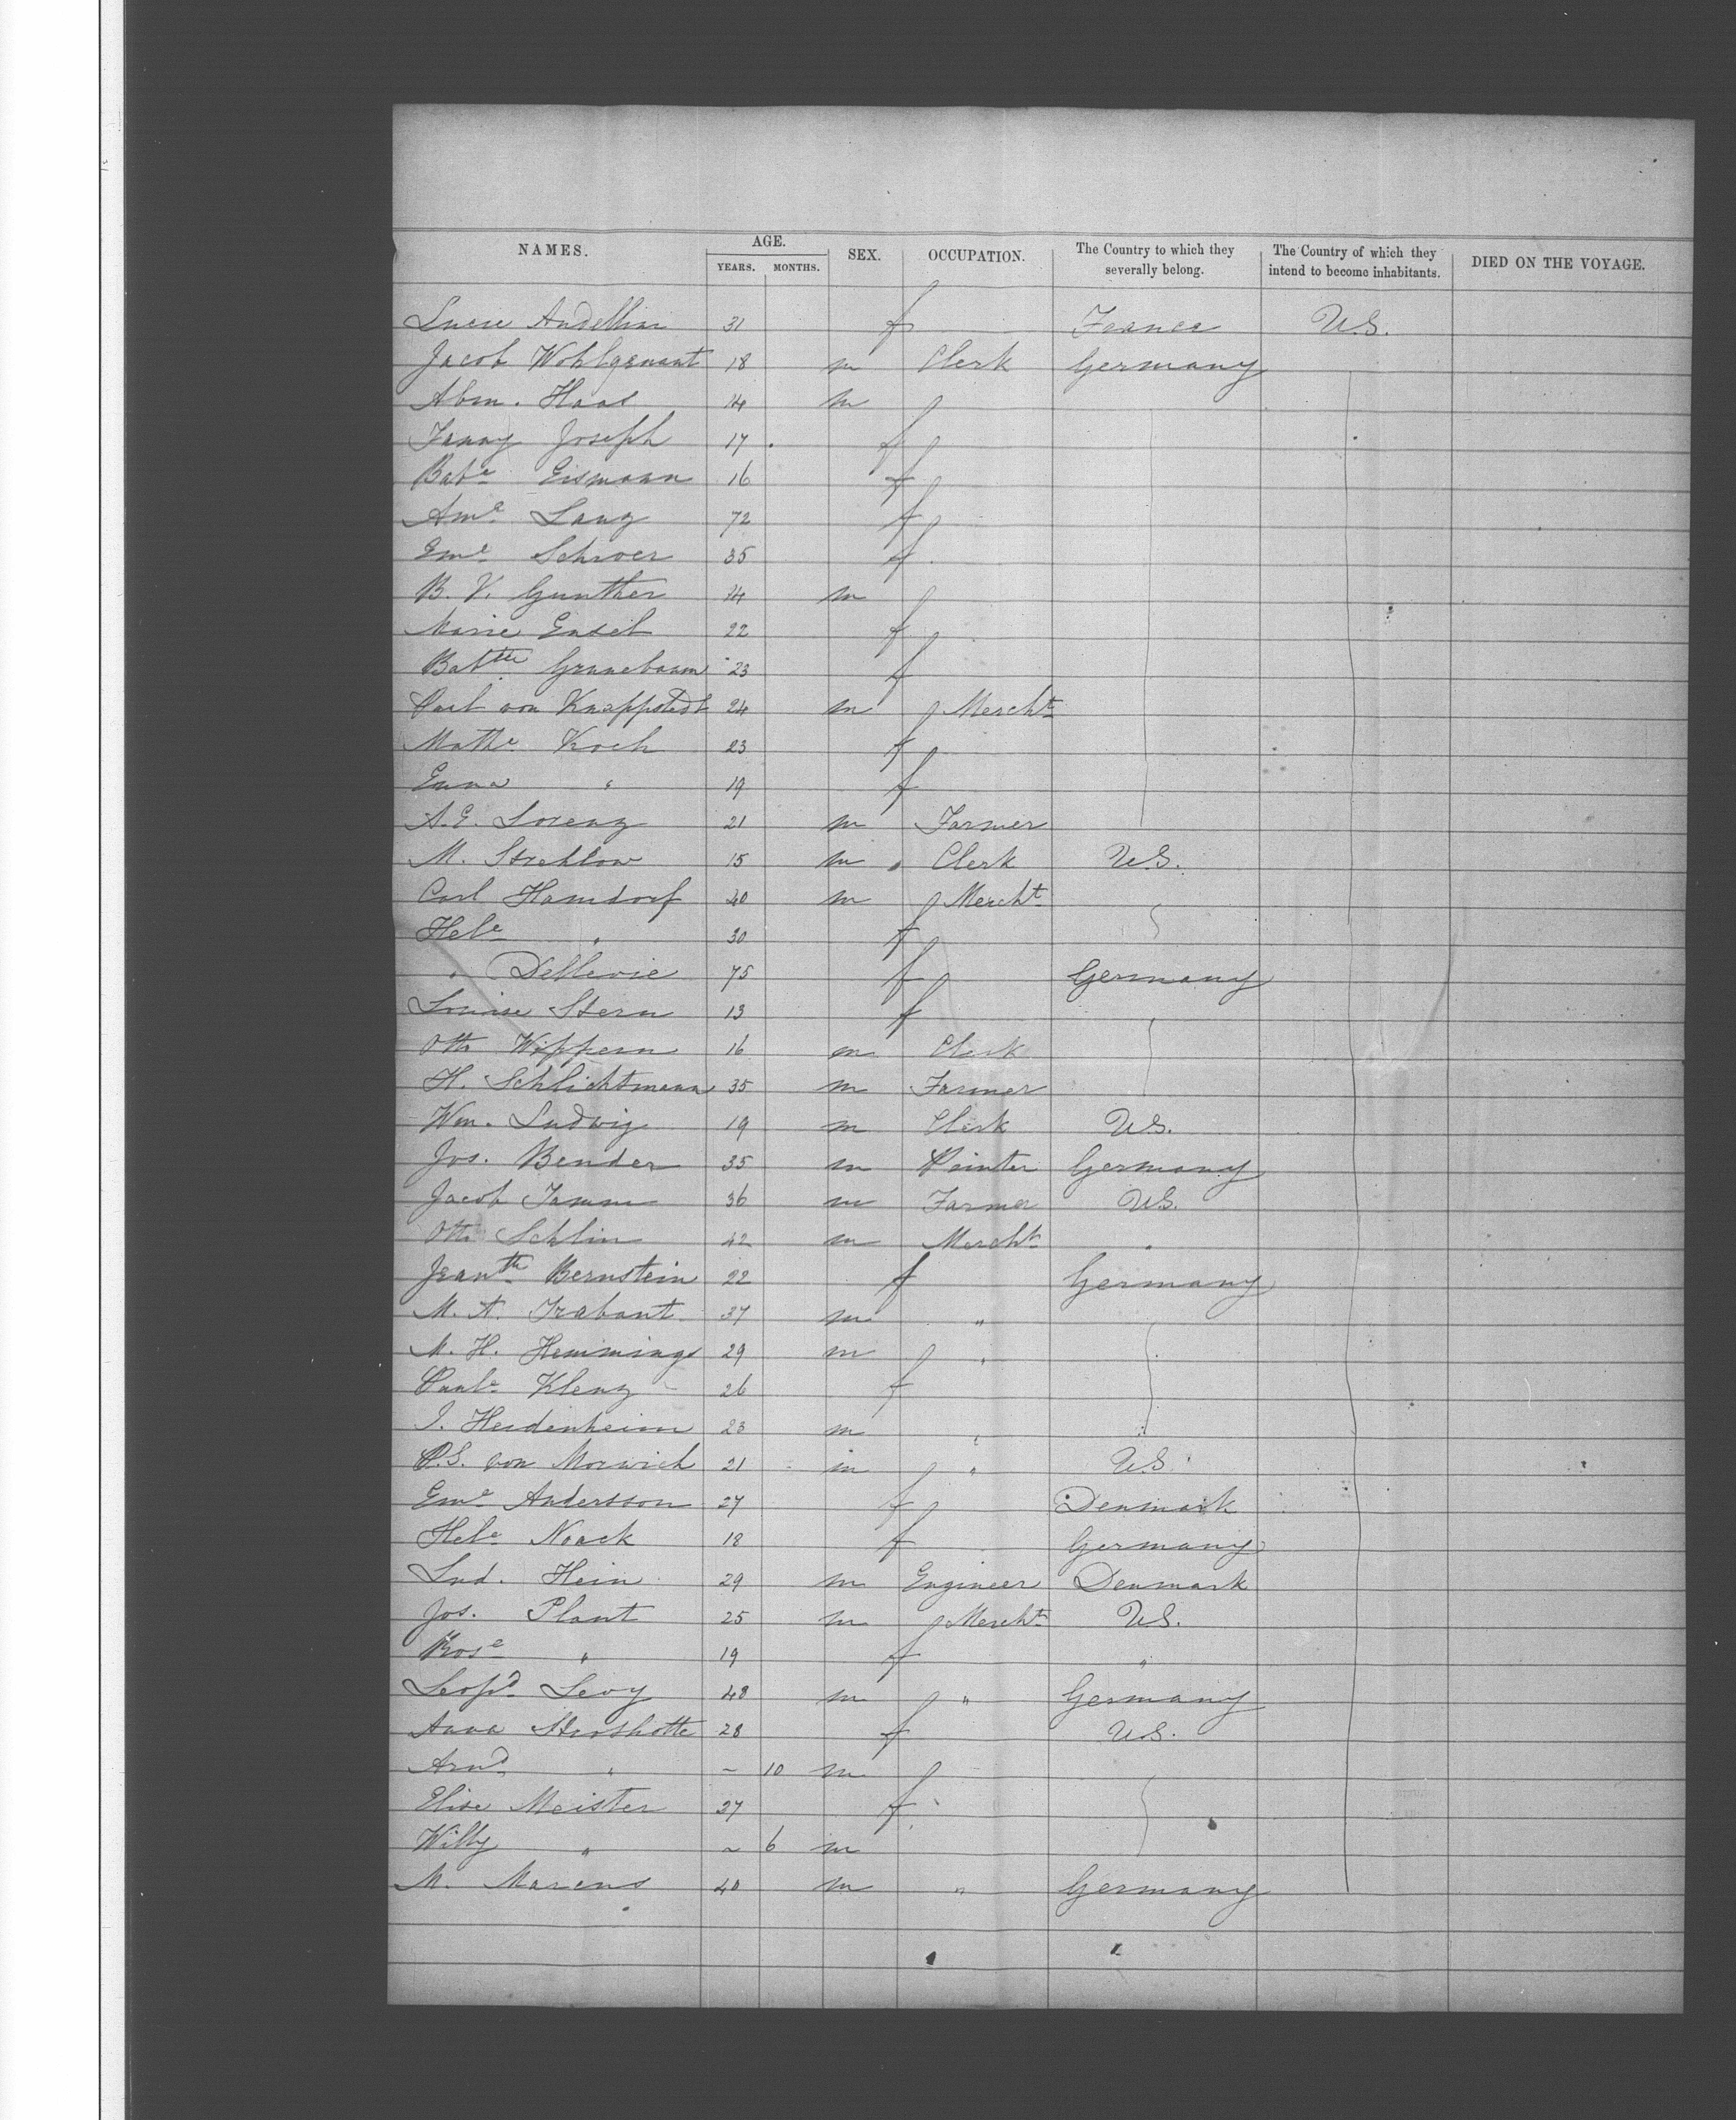 NAMES. AGE. YEARS. MONTHS. SEX. OCCUPATION. The Country to which they severally belong. The Country of which they intend to become inhabitants. DIED ON THE VOYAGE.
Lucie 31 f France U.S.
Jacob Wohlgenant 18 m Clerk Germany
Abm. Haas 14 m
Fanny Joseph 17 f
Babe Eismann 16 f
Ame Lang 72 f
Eme Schroer 35 f
B. V. Gunther 14 m
Marie 22 f
Batte Grunebaum 23 f
von Knappstedt 24 m Mercht
Mathe Koch 23 f
Emma " 19 f
A. E. Lorenz 21 m Farmer
M. Strehlow 15 m Clerk U.S.
Carl Hamdorf 40 m Mercht
Hele " 30 f
" Dellevie 75 f Germany
Louise Stern 13 f
Otto Wippern 16 m Clerk
H. Schlichtmann 35 m Farmer
Wm. Ludwig 19 m Clerk U.S.
Jos. Bender 35 m Painter Germany
Jacob Tamm 36 m Farmer U.S.
Otto Schlim 42 m Mercht "
Jeantte Bernstein 22 f Germany
M. A. Trabant 37 m "
M. H. Hemmings 29 m "
Paule Klenz 26 f
I. Heidenheim 23 m "
P. S. von Morwich 21 m " U.S.
Eme Andersson 27 f Denmark
Hele Noack 18 f Germany
Lud. Hein 29 m Engineer Denmark
Jos. Plant 25 m Mercht U.S.
Rose " 19 f "
Leopd Levy 48 m " Germany
Anna 28 f U.S.
Arnd " - 10 m
Elise Meister 27 f
Willy " - 6 m
M. Marcus 40 m " Germany